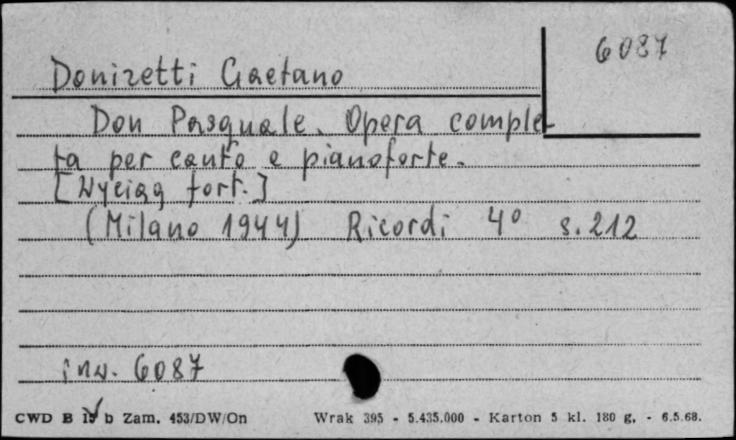 6087
Donizetti Gaetano
Don Pasquale. Opera comple-
ta per canto e pianoforte.
[Wyciąg fort.]
(Milano 1944) Ricordi 4° s. 212
inw. 6087
CWD B b Zam. 453/DW/On Wrak 395 - 5.435.000 - Karton 5 kl. 180 g. - 6.5.68.